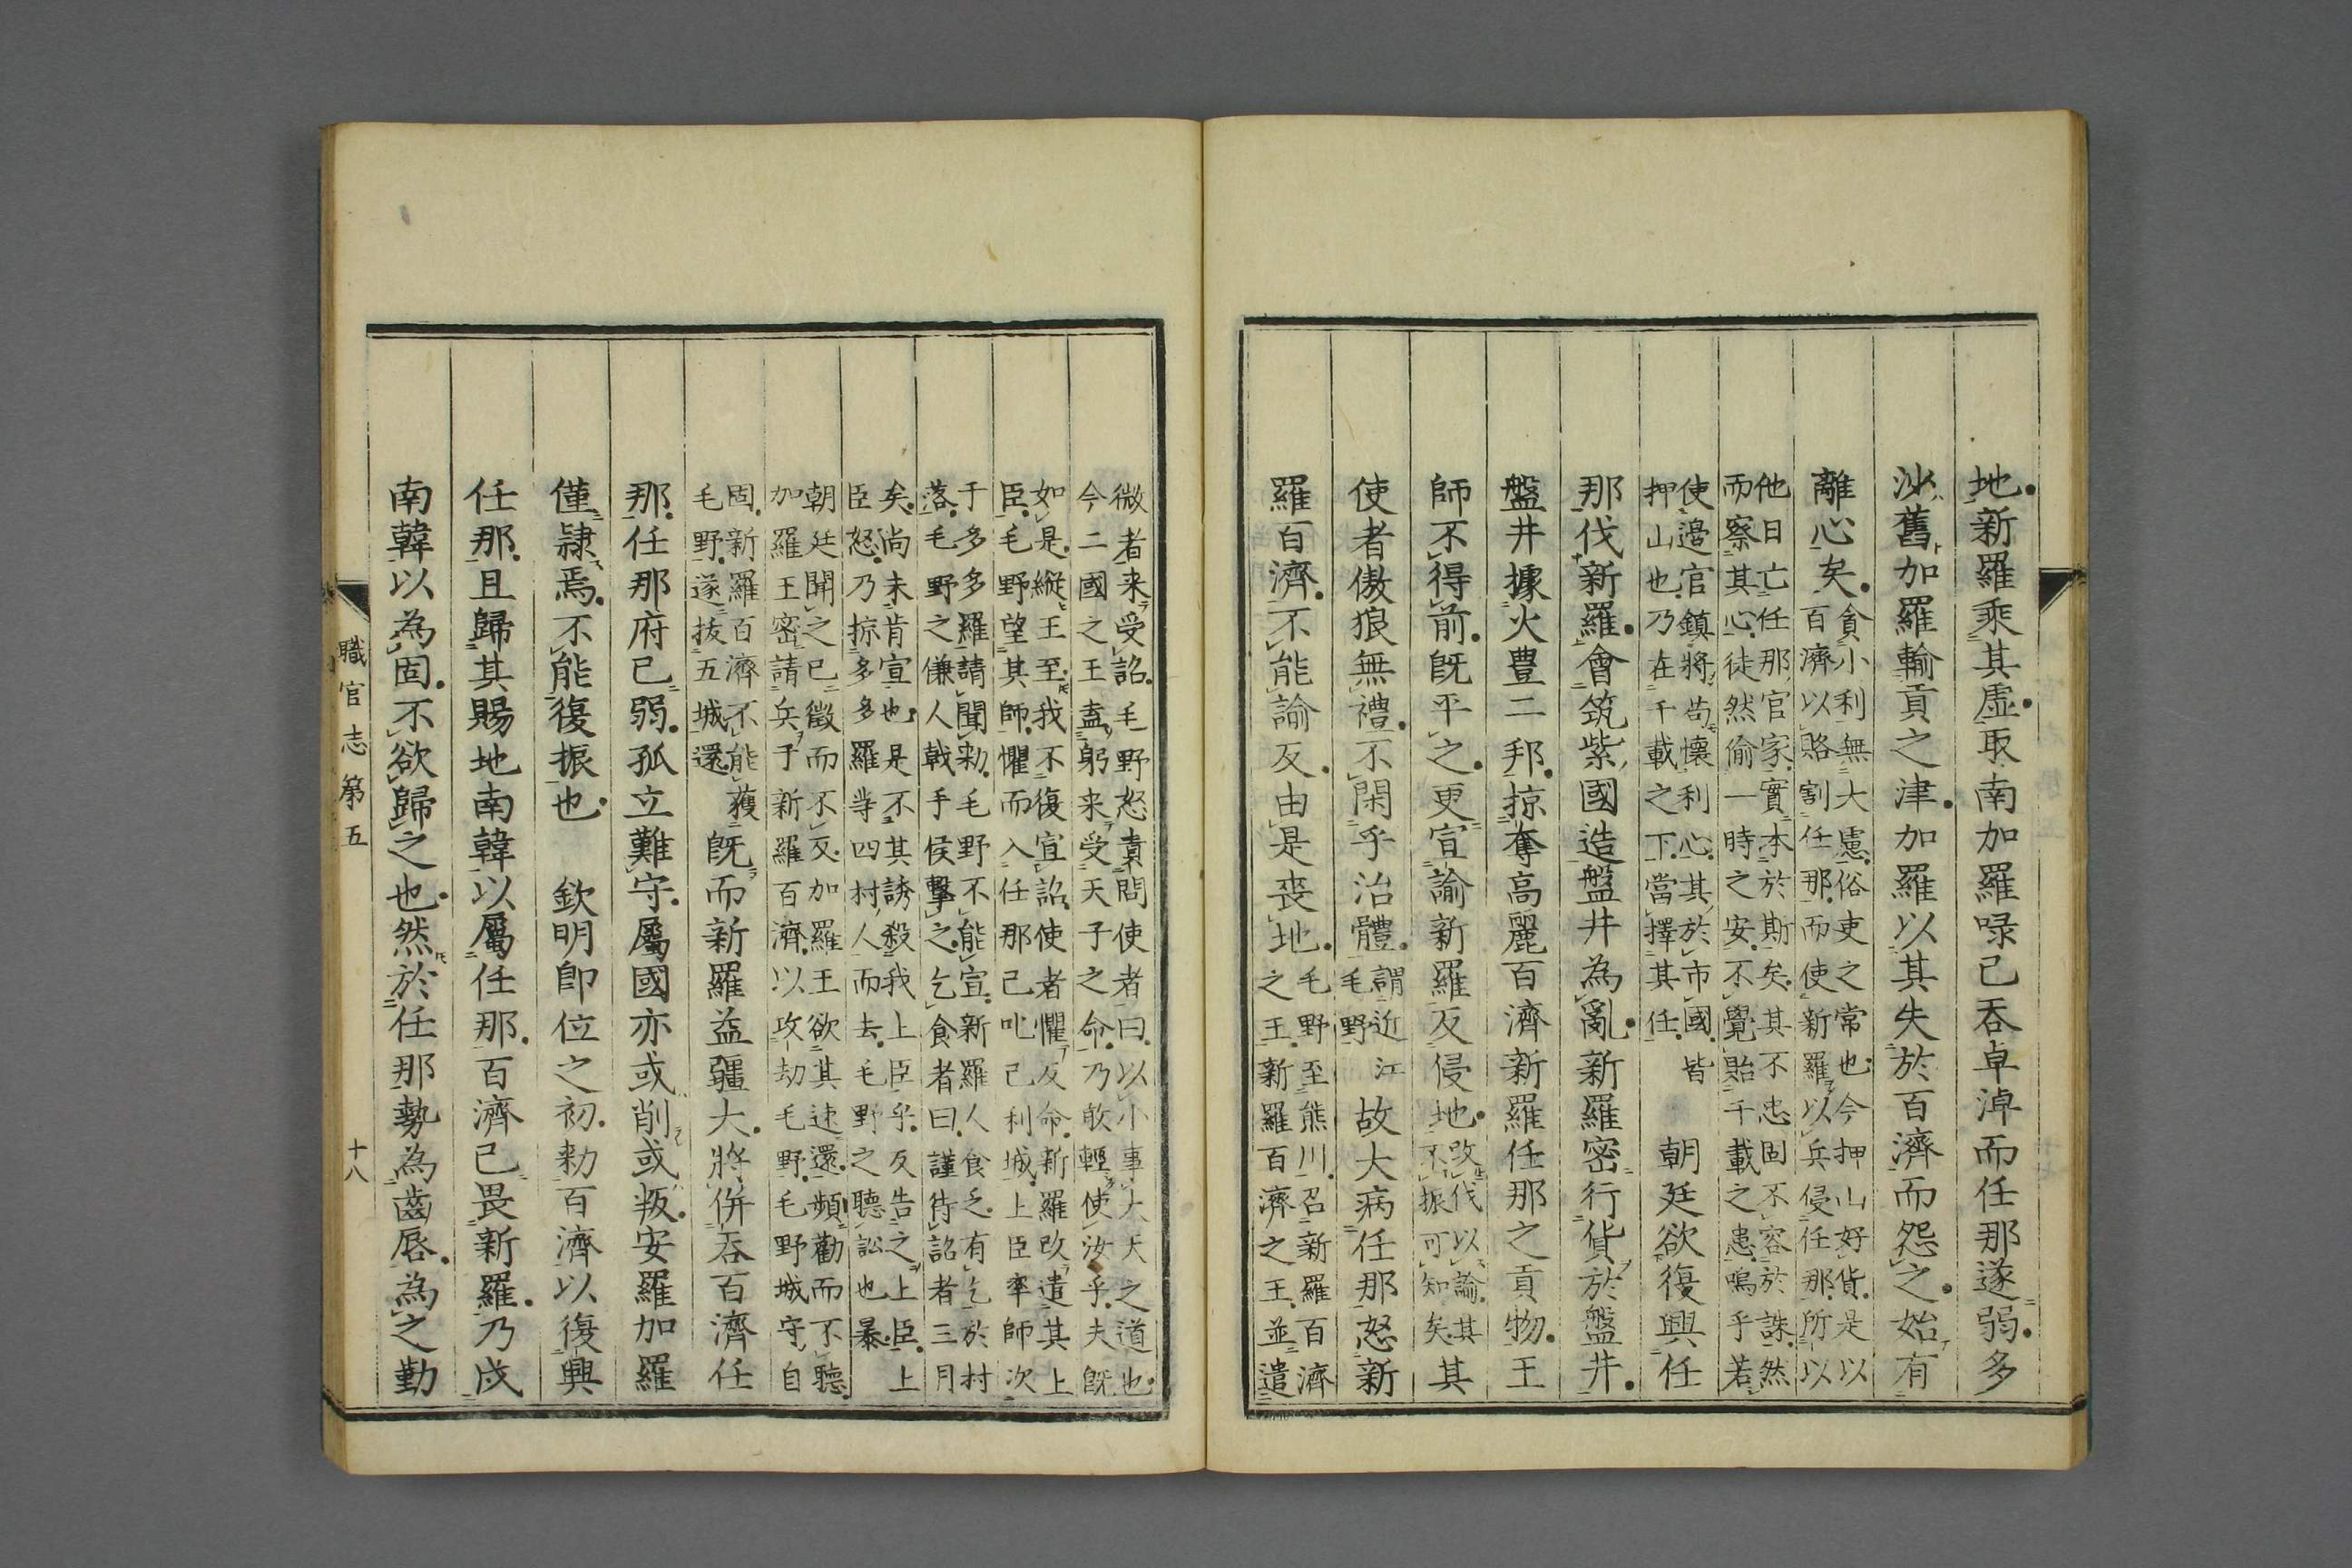 地新羅乘其虛取南加羅㖨己吞卓淖而任那遂弱多
沙舊加羅輸貢之津加羅以其失於百濟而怨之始有
離心矣
貪小利無大慮俗吏之常也今押山好貨是以
百濟以賂割任那而使新羅以兵侵任那所以
他日亡任那官家實本於斯矣其不忠固不容於誅然
而察其心徒然偷一時之安不覺貽千載之患嗚乎若
使邉官鎮將苟懷利心其於市國皆
押山也乃在千載之下當擇其任
朝廷欲復興任
那伐新羅會筑紫國造盤井為亂新羅密行貨於盤井
盤井據火豊二邦掠奪高麗百濟新羅任那之貢物王
師不得前既平之更宣諭新羅反侵地
改伐以諭其
不振可知矣
其
使者傲狼無禮不閑乎治體
謂近江
毛野
故大病任那怒新
羅百濟不能諭反由是喪地
毛野至熊川召新羅百濟
之王新羅百濟之王並遣
微者来受詔毛野怒責問使者曰以小事大天之道也
今二國之王盍躬来受天子之命乃敢輕使汝乎夫既
如是縱王至我不復宣詔使者懼反命新羅改遣其上
臣毛野望其師懼而入任那己叱己利城上臣率師次
于多多羅請聞勑毛野不能宣新羅人食乏有乞於村
落毛野之傔人戟手侯擊之乞食者曰謹待詔者三月
矣尚未肯宣也是不其誘殺我上臣乎反告之上臣上
臣怒乃掠多多羅等四村人而去毛野之聽訟也暴
朝廷聞之已徵而不反加羅王欲其速還頻勸而不聽
加羅王密請兵于新羅百濟以攻劫毛野毛野城守自
固新羅百濟不能獲
毛野遂拔五城還
既而新羅益疆大將併吞百濟任
那任那府已弱孤立難守屬國亦或削或叛安羅加羅
僅隷焉不能復振也　欽明卽位之初勑百濟以復興
任那且歸其賜地南韓以屬任那百濟已畏新羅乃戍
南韓以為固不欲歸之也然於任那勢為齒唇為之勤
職官志第五
十八